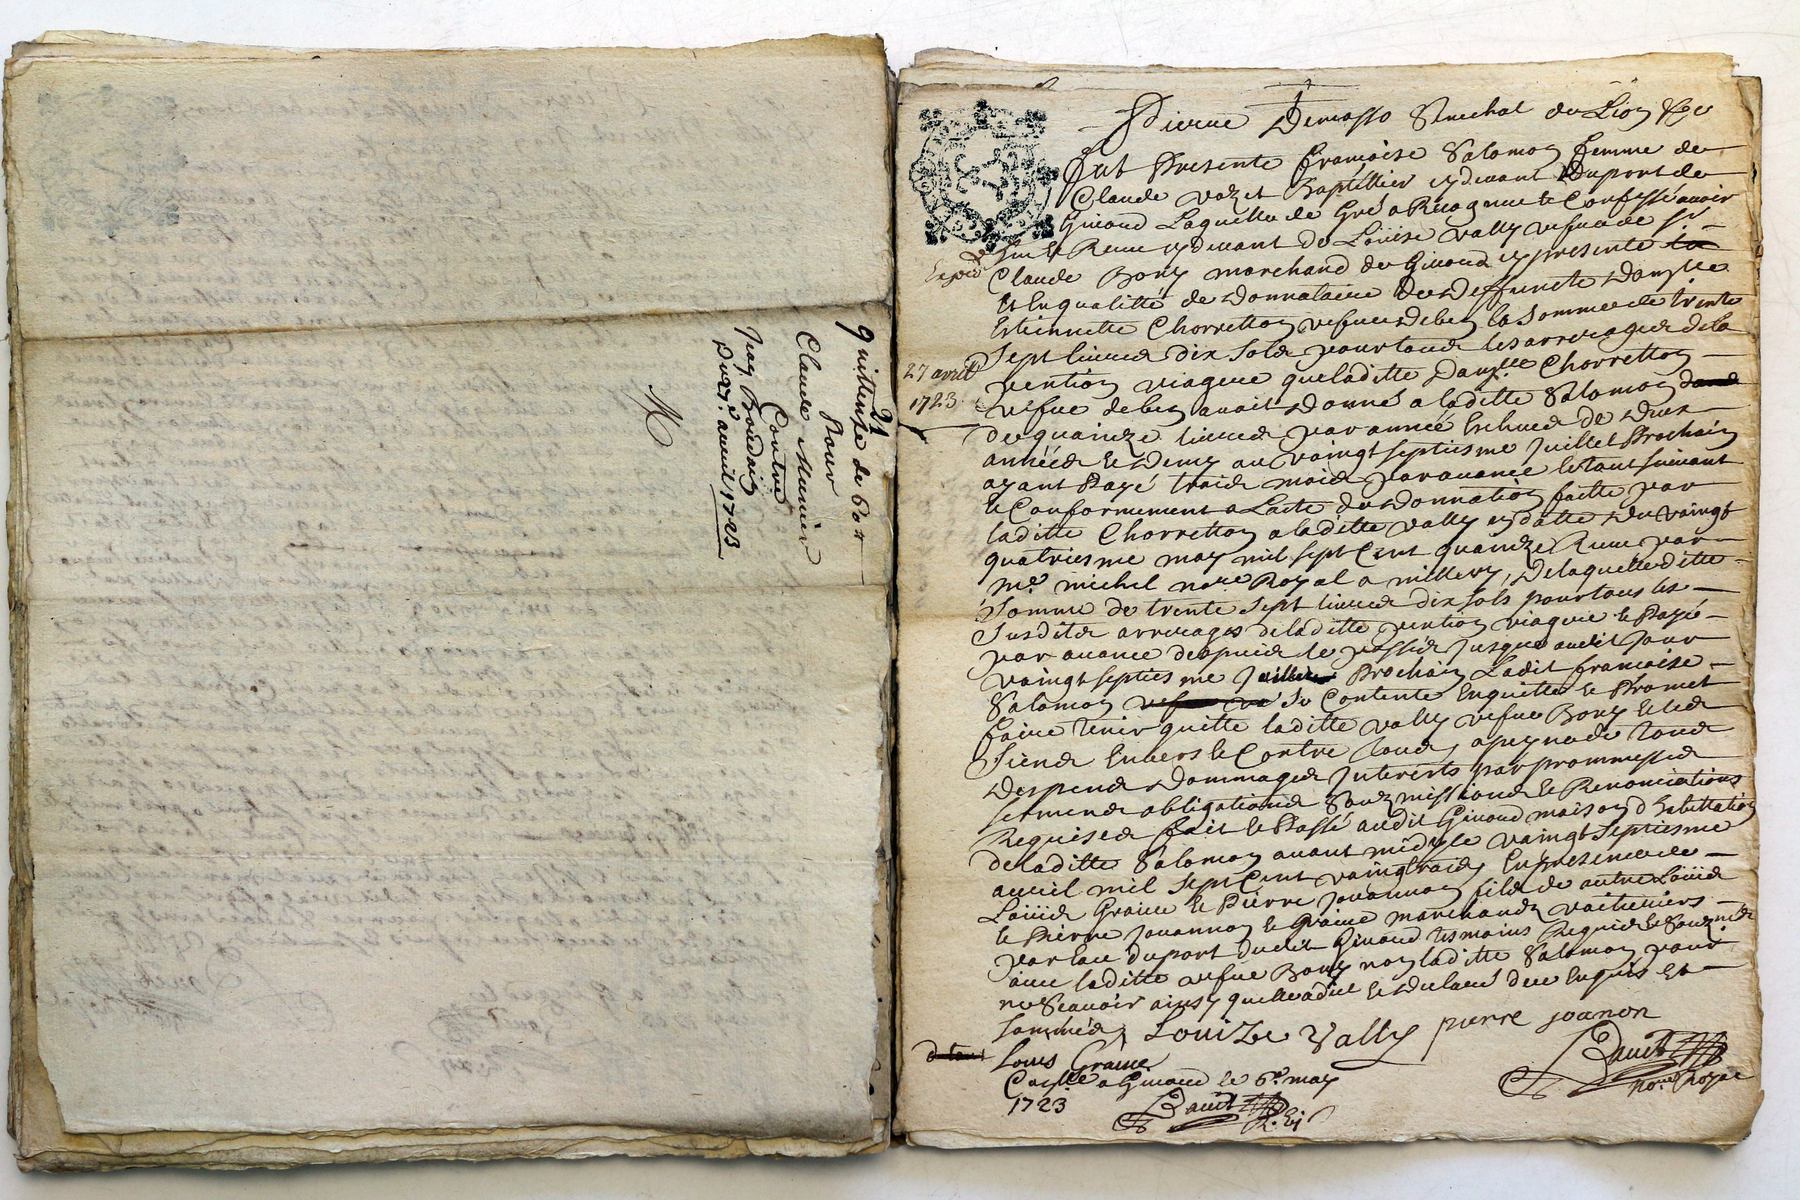 quittense de 60 #
21
Pour
Claude Munier
Contre
Jean Bourdain
Du 27e. avril 1723
Pierre Demasso Senechal de Lion &c
Fut Presente Françoise Salomon femme de
Claude vozet Baptellier cydevant Duport de
Givord Laquelle de Gré a Recogneu et Confessé avoir
heu et Receu cydevant de Loüise vally vefve de Sr.
Expedié
Claude Bony marchand de Givord cy presente
Et En qualitté de donnataire de deffuncte damlle
Estiennette Chorretton vefve debez la Somme de trente
Sept livres dix Sols pour tous les arrerages de la
27 avril
1723
pention viagere que laditte Damlle Chorretton
vefve debez avoit donné a laditte Salomon
de quainze livres par année Escheue de deux
années et demy au vaingt septiesme Juillet Prochain
ayant Payé trois mois par avance le tout suivant
et Conformement a Lacte de donnation faitte par
laditte Chorretton a laditte vally en datte du vaingt
quatriesme may mil sept Cent quainze Receu par
me. michel nore Royal a millery, De laquelle ditte
Somme de trente Sept livres dix sols pour tous les
Susdits arrerages de laditte pention viagere et Payé
par avance despuis le passés Jusque audit Jour
vaingt septiesme Juillet Prochain Ladit françoise
Salomon Se Contente En quitte et Promet
faire tenir quitte laditte vally vefve Bony et les
Siens Envers et Contre tous, a peyne de tous
Despens Dommages Interests par prommesses
serments obligations Soubzmissions et Renonciations
Requises fait et Passé audit Givord maison d'habittation
de laditte Salomon avant midy le vaingt Septiesme
avril mil sept Cent vaingt trois, En presence de
Loüis Graine et Pierre Jouannon fils de autre Loüis
et Pierre Jouannon et Graine marchands voituriers
par Eau du port dudit Givord tesmoins Requis et Soubznés
avec laditte vefve Bony non laditte Salomon pour
ne Scavoir ainsy quelle a dit et declaré de ce Enquis et
Sommés, Louize Vally pierre joanon
Louis Graine
Conlle a Givord le 6e. may
1723
nore Royal